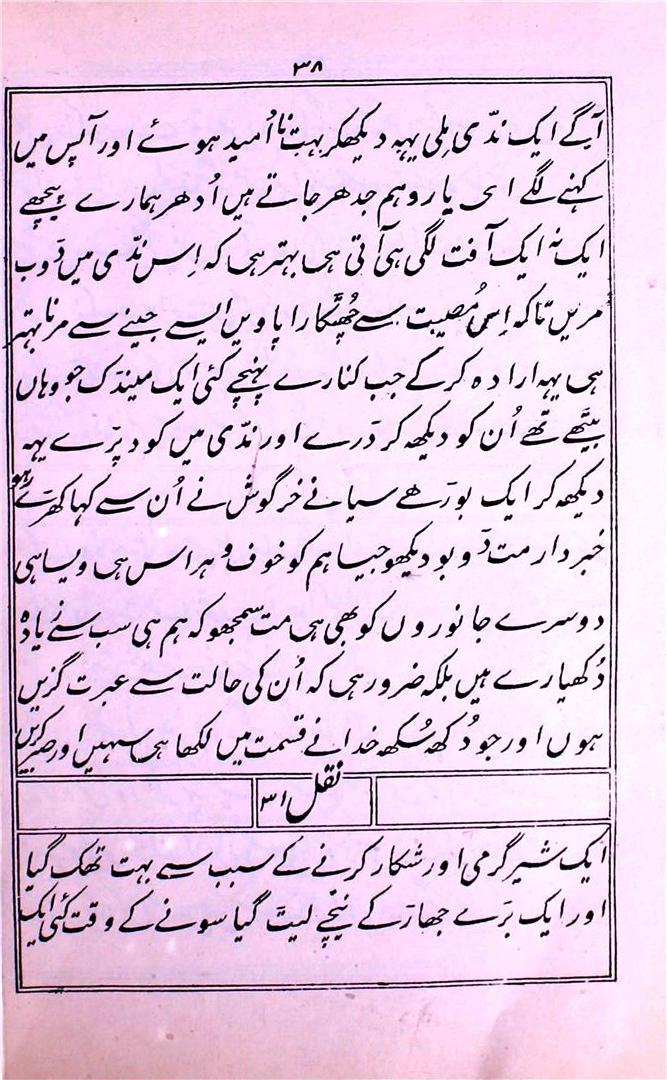 ۳۸
آگے ایک ندّی ملی یہہ دیکھکر بہت نا اُمید ہوئے اور آپس میں
کہنے لگے ای یارو ہم جدھر جاتے ہیں اُدھر ہمارے پیچھے
ایک نہ ایک آفت لگی ہی آتی ہی بہتر ہی کہ اِس ندّی میں دَوب
مریں تاکہ اِس مُصیبت سے چُھٹکارا پاویں ایسے جینے سے مرنا بہتر
ہی یہہ ارادہ کرکے جب کنارے پہنچے کئی ایک میندَک جو وہاں
بیتّھے تھے اُن کو دیکھ کر دَرے اور ندّی میں کود پرَے یہہ
دیکھ کر ایک بورَھے سیانے خرگوش نے اُن سے کہا کھرَے رہو
خبردار مت دَوبو دیکھو جیسا ہم کو خوف و ہراس ہی ویسا ہی
دوسرے جانوروں کو بھی ہی مت سمجھو کہ ہم ہی سب سے زیادہ
دُکھیارے ہیں بلکہ ضرور ہی کہ اُن کی حالت سے عبرت گزیں
ہوں اور جو دُکھ سُکھ خدا نے قسمت میں لکھا ہی سہیں اور صبر کریں
نقل ۳۱
ایک شیر گرمی اور شکار کرنے کے سبب سے بہت تھک گیا
اور ایک برَے جھارَ کے نیچے لیتَ گیا سونے کے وقت کئی ایک